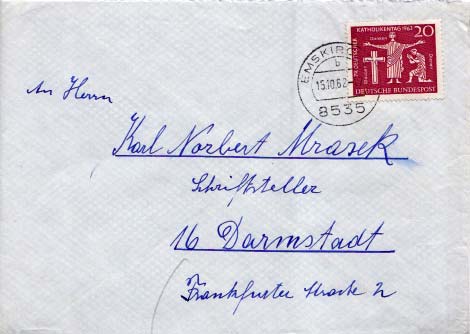 79. DEUTSCHER KATHOLIKENTAG 1962 20
DEUTSCHE BUNDESPOST
EMSKIRC
b
15.10.62
8535
An Herrn
Karl Norbert Mrasek
Schriftsteller
16 Darmstadt
Frankfurter Strasse 2